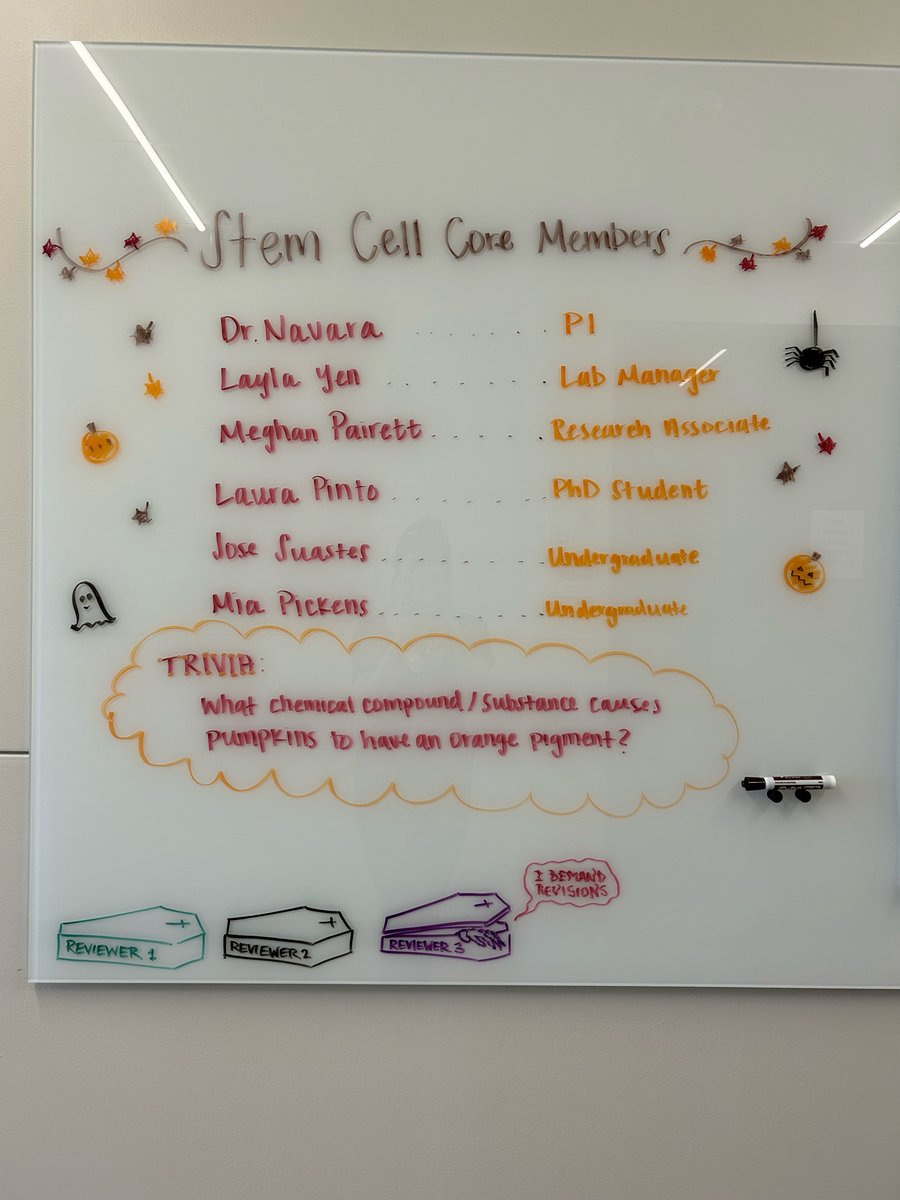 Stem Cell Core Members
Dr. Navara ........ PI
Layla Yen ........ Lab Manager
Meghan Pairett ........ Research Associate
Laura Pinto ........ PhD Student
Jose Suastes ........ Undergraduate
Mia Pickens ........ Undergraduate
TRIVIA:
What chemical compound/substance causes
pumpkins to have an orange pigment?
I DEMAND
REVISIONS
REVIEWER 1
REVIEWER 2
REVIEWER 3